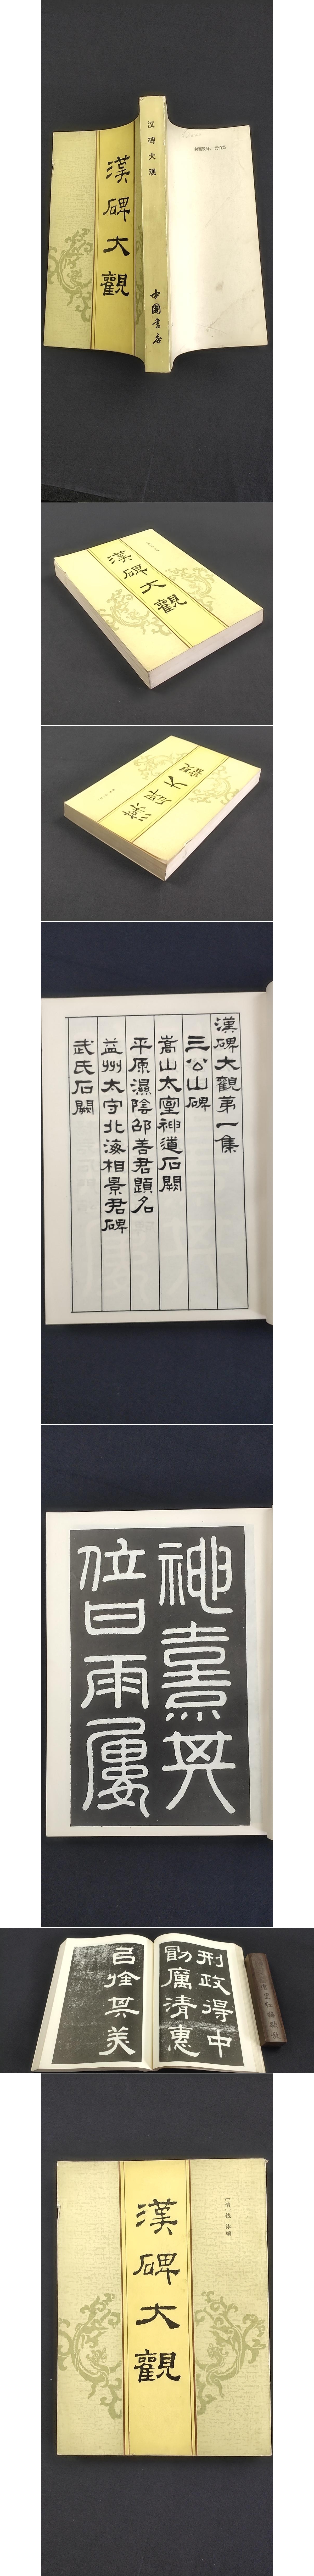 漢碑大觀
汉碑大观
中國書店
封面设计：
漢碑大觀
漢碑大觀
漢碑大觀第一集
三公山碑
嵩山太室神道石闕
平原濕陰邵善君題名
益州太守北海相景君碑
武氏石闕
神熹其
位甘雨屢
刑政得中
勖厲清惠
其美
〔清〕钱 泳 编
漢碑大觀